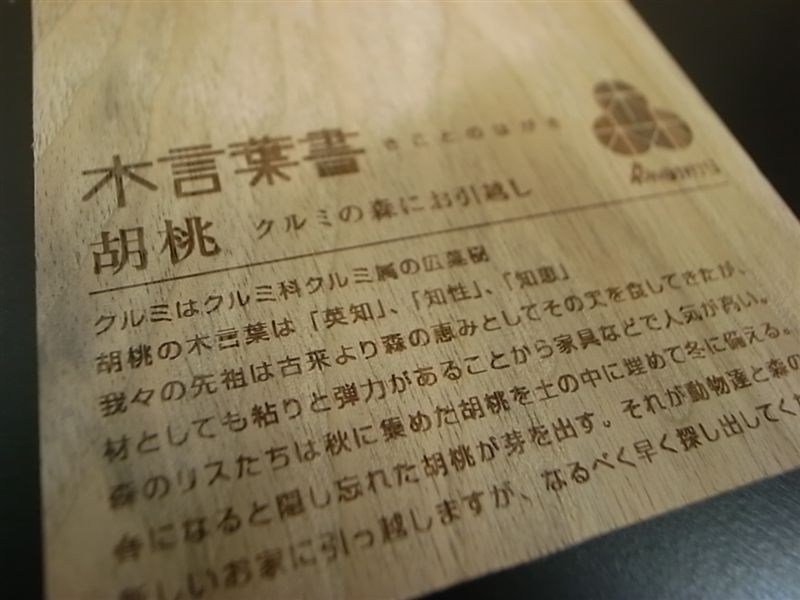 木言葉書 きことのはがき
胡桃 クルミの森にお引越し
クルミはクルミ科クルミ属の広葉樹
胡桃の木言葉は「英知」、「知性」、「知恵」
我々の先祖は古来より森の恵みとしてその実を食してきたが、
材としても粘りと弾力があることから家具などで人気が高い。
森のリスたちは秋に集めた胡桃を土の中に埋めて冬に備える。
春になると隠し忘れた胡桃が芽を出す。それが動物達と森の
新しいお家に引っ越しますが、なるべく早く探し出してくだ